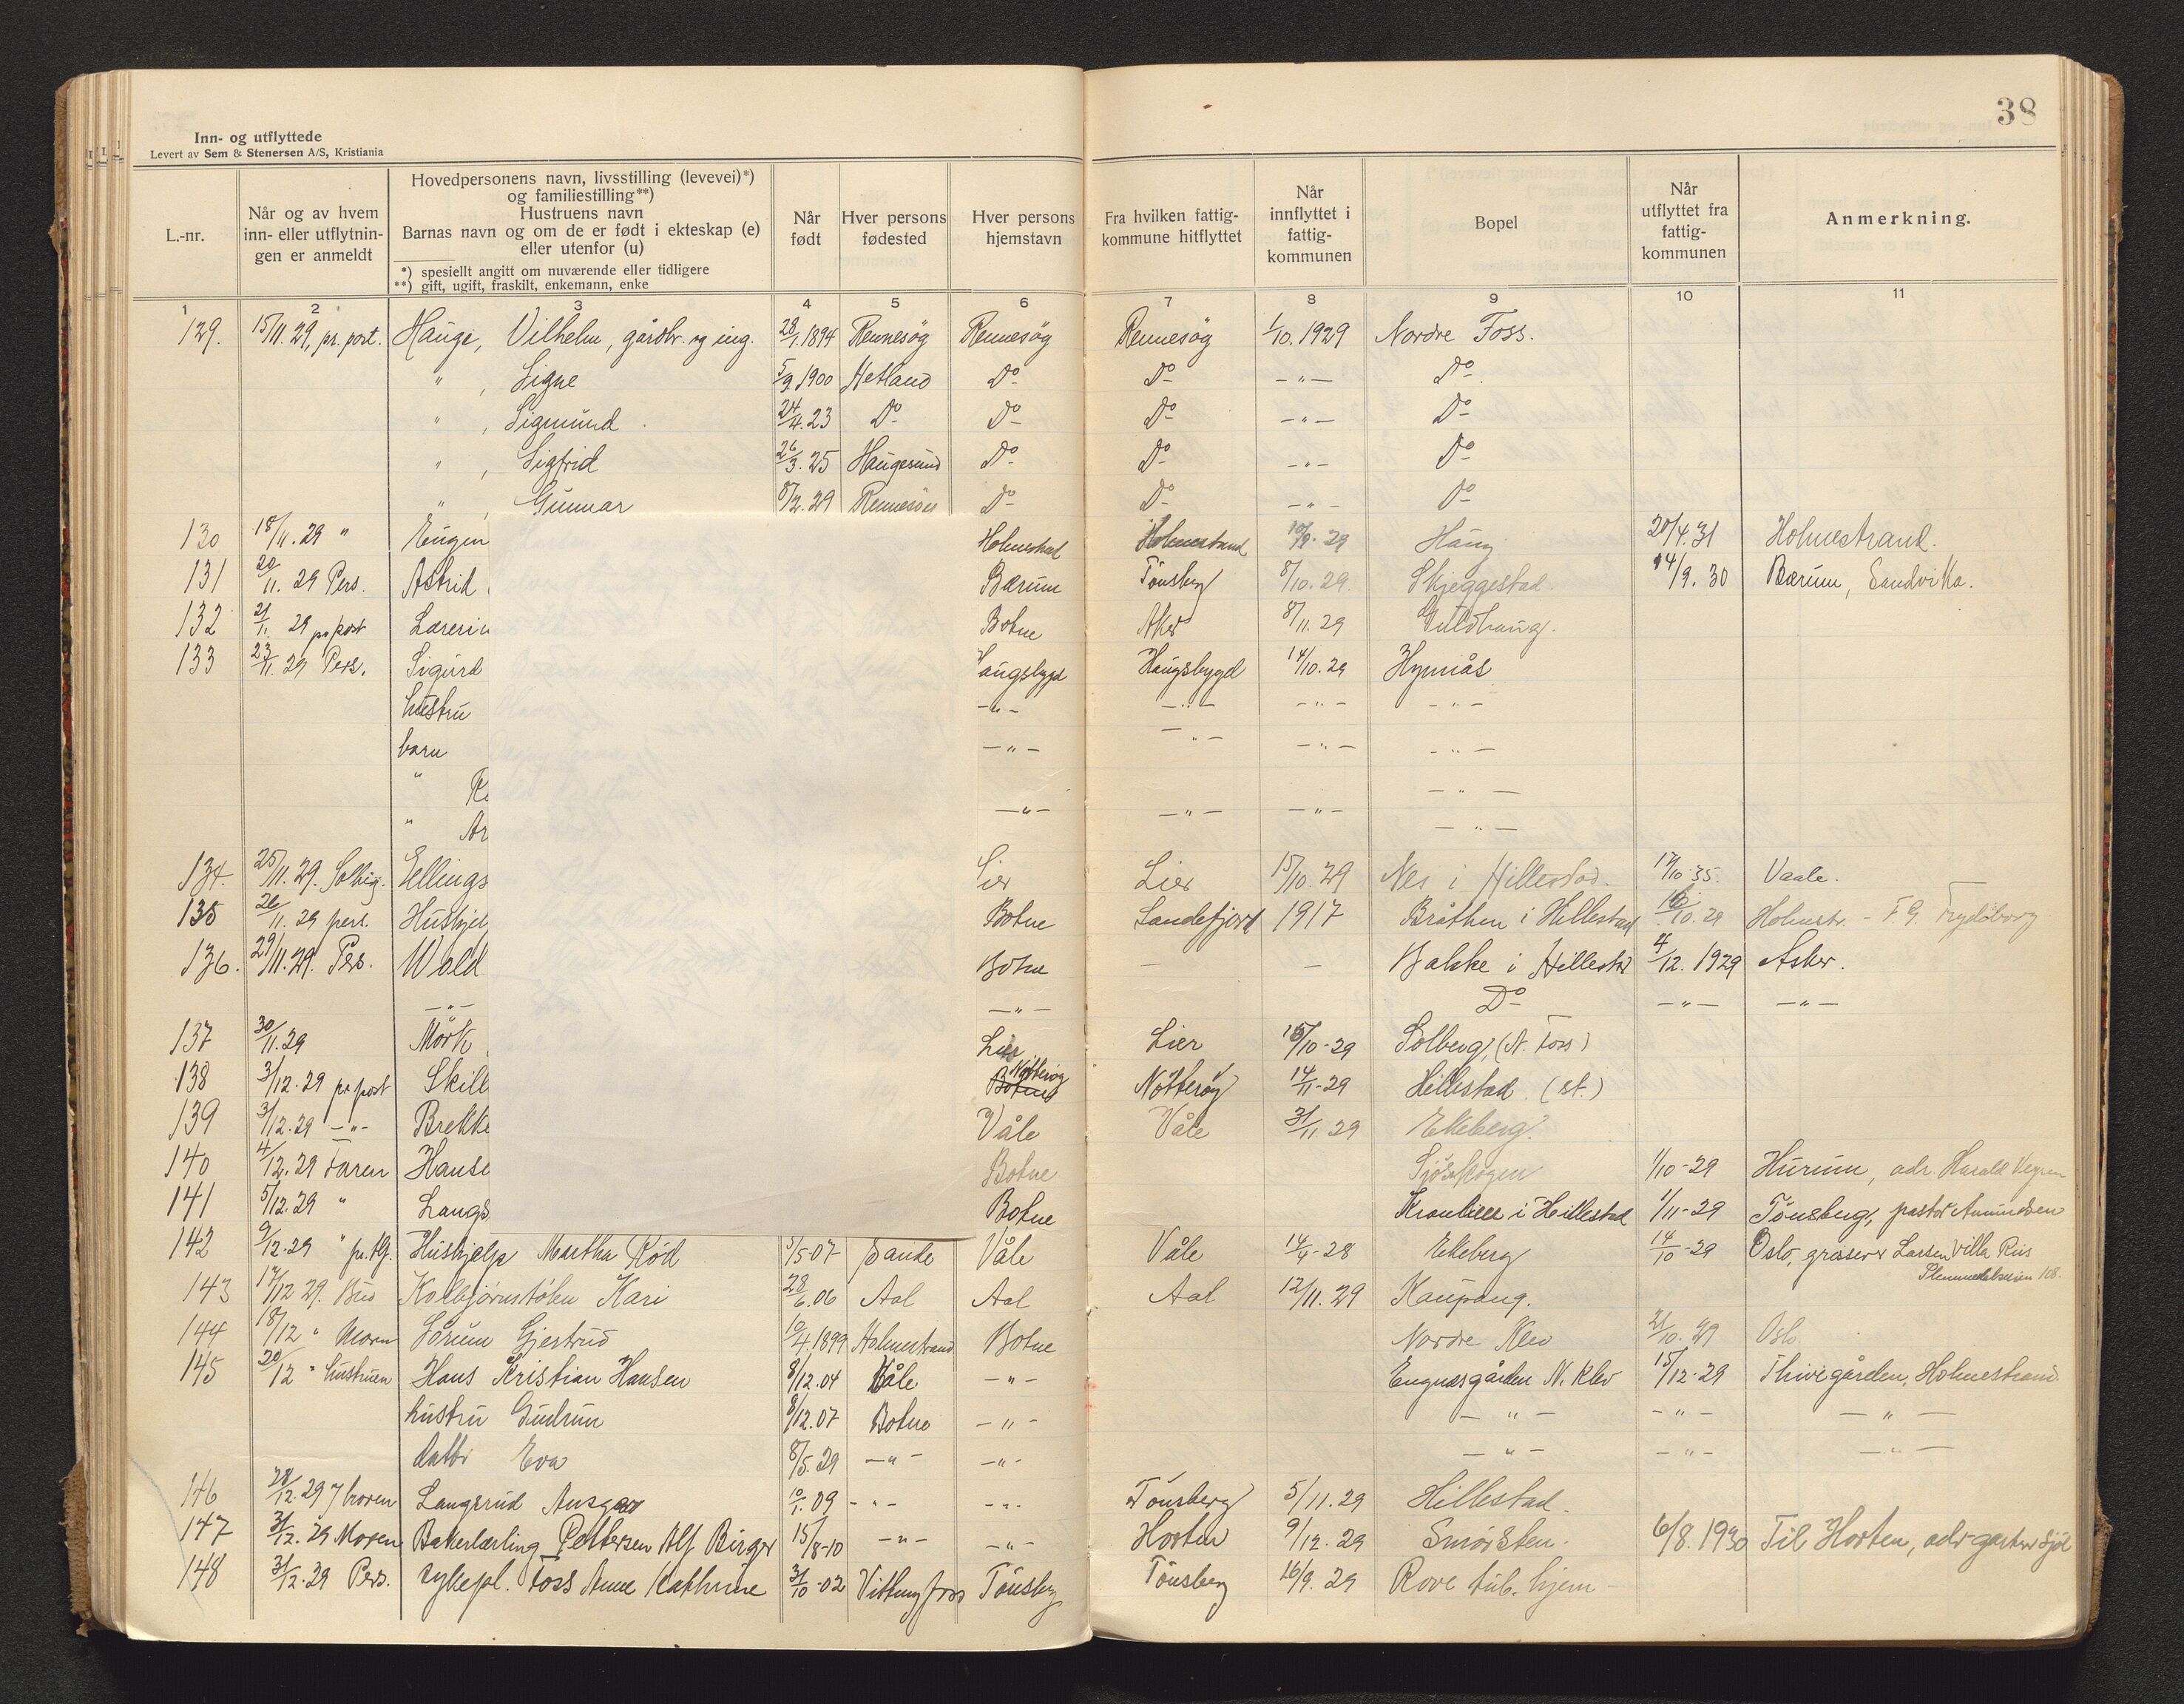 38
Inn- og utflyttede
Levert av Sem & Stenersen A/S, Kristiania
L.-nr.
Når og av hvem inn- eller utflytnin- gen er anmeldt
Hovedpersonens navn, livsstilling (levevei)*)
og familiestilling**)
Hustruens navn
Barnas navn og om de er født i ekteskap (e)
eller utenfor (u)
*) spesiellt angitt om nuværende eller tidligere
**) gift, ugift, fraskilt, enkemann, enke
Når født
Hver persons fødested
Hver persons hjemstavn
Fra hvilken fattig- kommune hitflyttet
Når innflyttet i fattig- kommunen
Bopel
Når utflyttet fra fattig- kommunen
Anmerkning.
1 2 3 4 5 6 7 8 9 10 11
129. 15/11.29, pr. post. Hauge, Vilhelm, gårdbr. og ing. 28/1.1894 Rennesöy Rennesöy Rennesöy 1/10.1929 Nordre Foss.
" , Signe 5/9 1900 Hetland Do Do -"- Do
" , Sigmund 24/4.23 Do Do Do -"- Do
" , Sigfrid 26/3.25 Haugesund Do Do -"- Do
" , Gunnar 8/2.29 Rennesöy Do Do -"- Do
130 18/11.29 " Eugen Holmestrand Holmestrand 29 Haug 20/4.31 Holmestrand.
131 20/11.29 Pers. Astrid Bærum Tönsberg 8/10.29. Skjeggestad. 14/9.30 Bærum, Sandvika.
132 21/11 29 pr post Lærerin Botne Aker 8/11.29 Guldhaug.
133 23/11.29 Pers. Sigurd Haugsbygd Haugsbygd 14/10.29 Hynnås
hustru -"- -"- -"- -"-
barn -"- -"- -"- -"-
" -"-
" Ar -"- -"- -"- -"-
134. 25/11.29. Ellings Lier Lier 15/10.29 Nes i Hillestad. 17/10.35. Vaale.
135 26/11.29 pers. Hushjel Botne Sandefjord 1917 Bråthen i Hillestad 16/10.29 Holmestr. - F.G. Frydsborg
136. 29/11.29. Pers. Wold Botne - - Bakke i Hillestad 4/12.1929 Asker.
-"- -"- Do -"- -"-
137 30/11.29 Mörk Lier Lier 15/10-29 Solberg, (N. Foss)
138 3/12.29 pr post Skill Nötteröy Botne Nötteröy 14/11-29 Hillestad (st.)
139 3/12.29 -"- Brekke Våle Våle 31/11 29 Ekeberg.
140 4/12.29 Faren Hanse Botne Sjöskogen 1/10-29 Hurum, adr. Harald
141 5/12.29 " Langs Botne i Hillestad 1/11-29 Tönsberg, pastor Amundsen
142 9/12.29 " Hushjelp Martha Röd 3/5-07 Sande Våle Våle 14/4-28 Ekeberg 14/10-29 Oslo, grosserer Larsen Villa Riis
108.
143 17/12 29. Bud Kolbjörnstölen Kari 28/6.06 Aal Aal Aal 12/11.29 Kaupang.
144 18/12 " Moren Sörum Gjestrud 10/4.1899 Holmestrand Botne Nordre Klev 21/10.29 Oslo
145 20/12 " hustruen Hans Kristian Hansen 8/12.04 Våle -"- Engnæsgården N. Klev 15/12-29 Thivegården, Holmestrand
hustru Gudrun 8/12.07 Botne -"- -"- -"- -"-
datter Eva 8/5.29 -"- -"- -"- -"- -"-
146 28/12.29 Langsrud Ansgar 10/1.09 -"- -"- Tönsberg 5/11.29 Hillestad.
147 31/12.29 Moren Bakerlærling Pettersen Alf Birger 15/8-10 -"- -"- Horten 9/12.29 Smörsten. 6/8.1930 Til Horten, adr. gartner
148 31/12.29 Pers. sykepl. Foss Anne Kathrine 31/10-02 Vittingfoss Tönsberg Tönsberg 16/9.29 Rove tub. hjem